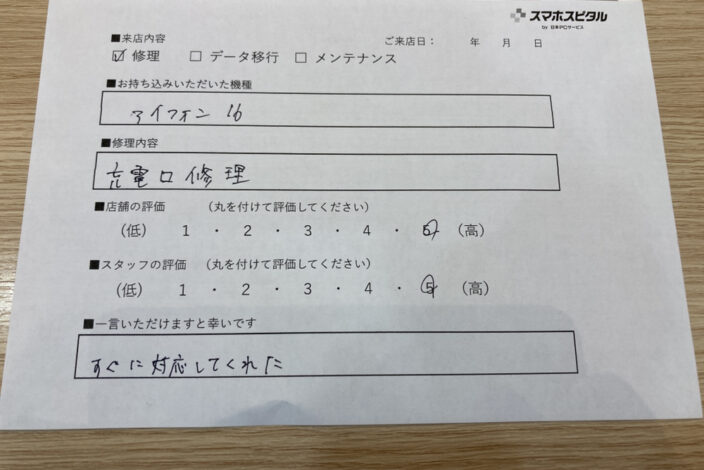 スマホスピタル
by 日本PCサービス
■来店内容
ご来店日： 年 月 日
☑ 修理 □ データ移行 □ メンテナンス
■お持ち込みいただいた機種
アイフォン 16
■修理内容
充電口修理
■店舗の評価 （丸を付けて評価してください）
（低） 1 ・ 2 ・ 3 ・ 4 ・ 5 （高）
■スタッフの評価 （丸を付けて評価してください）
（低） 1 ・ 2 ・ 3 ・ 4 ・ 5 （高）
■一言いただけますと幸いです
すぐに対応してくれた